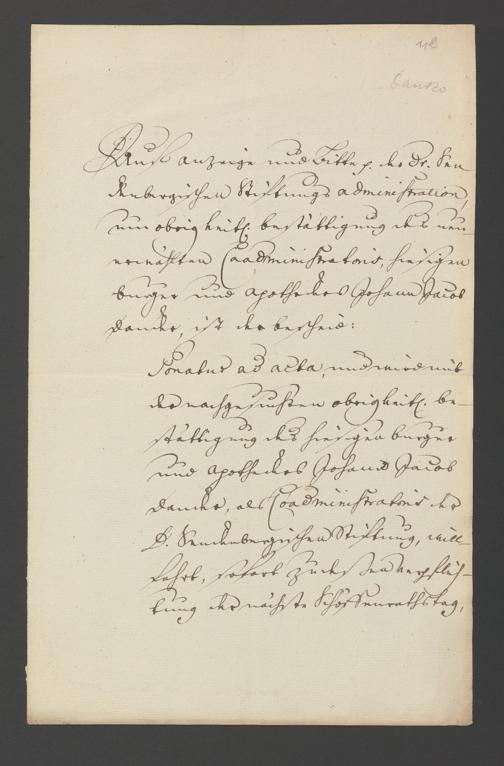 118
Auf anzeige und Bitte p. der Dr. Sen-
ckenbergischen Stiftungs administration,
um obrigkeitl. bestättigung des neu-
erwählten Coadministratoris, hiesigen
burger und apotheckers Johann Jacob
Dancker, ist der bescheid:
Ponatur ad acta, und wird mit
der nachgesuchten obrigkeitl. be-
stättigung des hiesigen burger
und apotheckers Johann Jacob
Dancker, als Coadministratoris der
D. Senckenbergischen Stiftung, will-
fahrt, sofort zu deßen verpflich-
tung der nächste Schöffenrathstag,